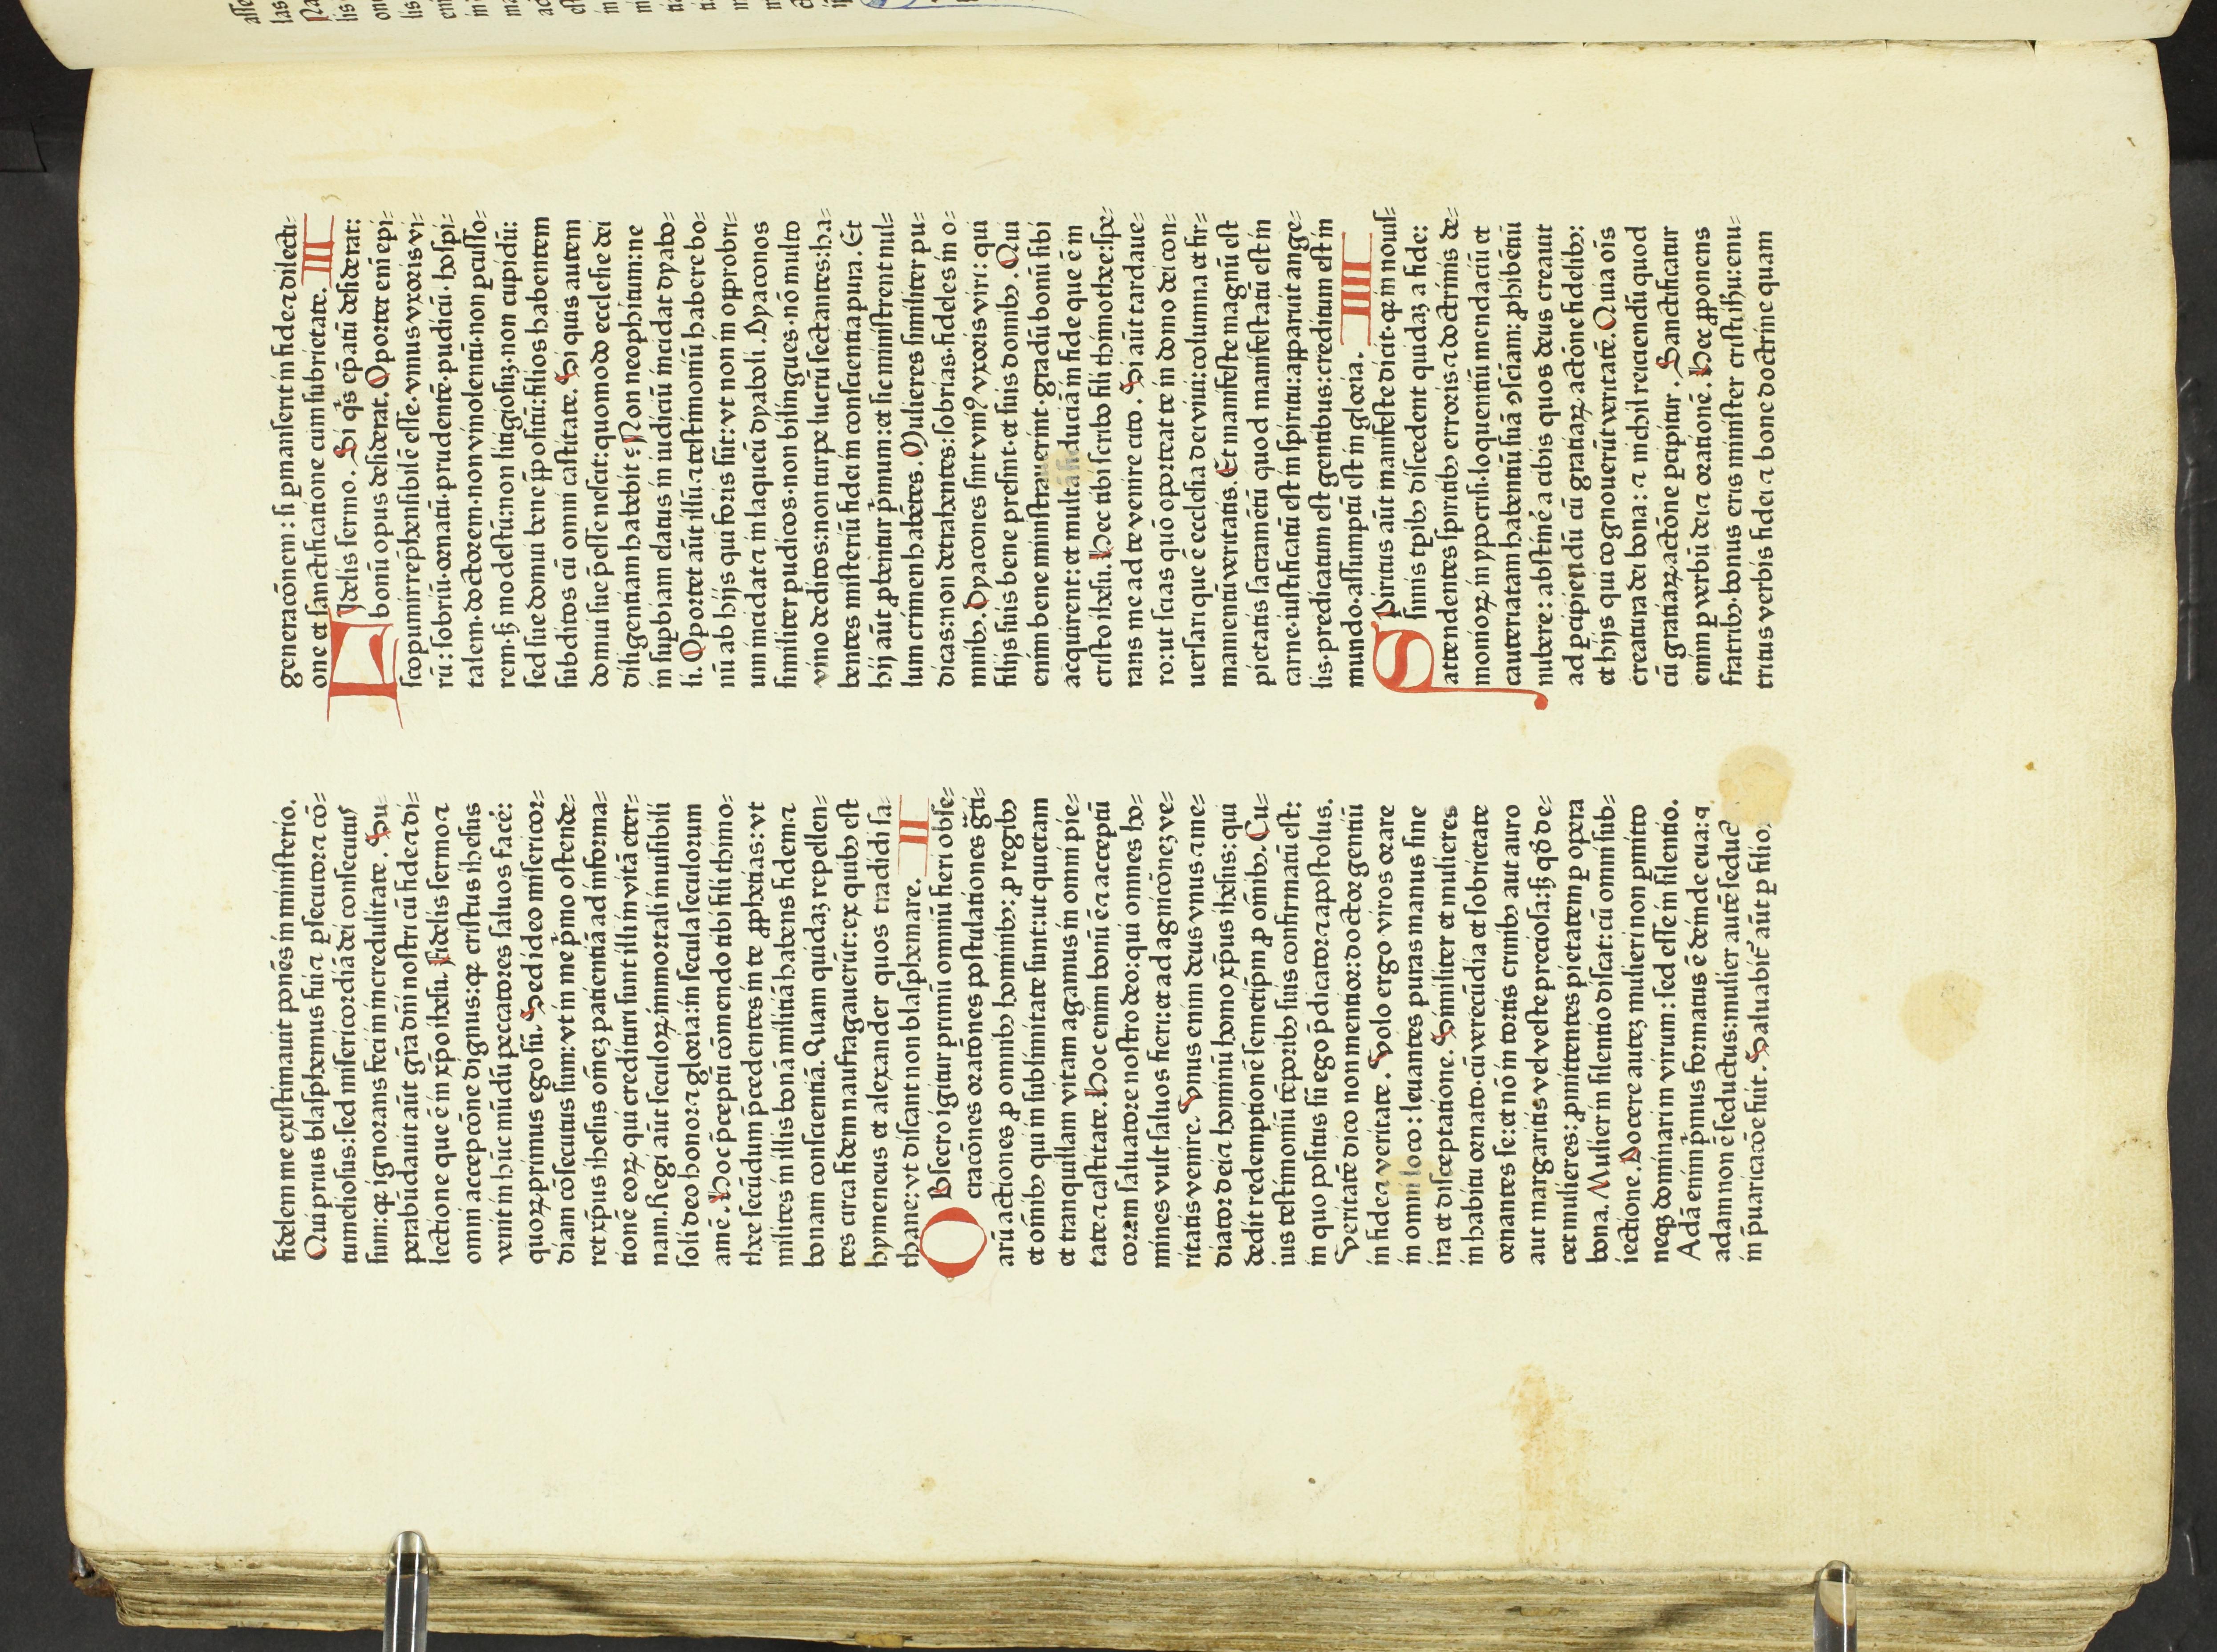 fidelem me existimauit ponēs in ministerio.
Qui prius blasphemus fui ⁊ ꝑsecutor ⁊ cō⸗
tumeliosus: sed misericordiā dei consecutus
sum: qꝛ ignorans feci in incredulitate. Su⸗
perabūdauit aūt gr̄a dn̄i nostri cū fide ⁊ di⸗
lectione que ē in xp̄o ihesu. Fidelis sermo ⁊
omni accepcōne dignus: qꝛ cristus ihesus
venit in hūc mūdū peccatores saluos facē:
quoꝝ primus ego sū. Sed ideo misericor⸗
diam cōsecutus sum: vt in me p̄mo ostende⸗
ret xp̄us ihesus om̄eꝫ patientiā ad informa⸗
tionē eoꝝ qui credituri sunt illi in vitā eter⸗
nam. Regi aūt seculoꝝ immortali inuisibili
soli deo honor ⁊ gloria: in secula seculorum
amē. Hoc p̄ceptū cōmendo tibi fili thimo⸗
thee secūdum p̄cedentes in te ꝓphetias: vt
milites in illis bonā militiā habens fidem ⁊
bonam conscientiā. Quam quidaꝫ repellen⸗
tes circa fidem naufragauerūt: ex quibꝫ est
hymeneus et alexander quos tradidi sa⸗
thane: vt discant non blasphemare. II
OBsecro igitur primū omniū fieri obse⸗
cracōnes oratōnes postulationes g̃ti⸗
arū actiones ꝓ omnibꝫ hominibꝫ: ꝓ regibꝫ
et om̄ibꝫ qui in sublimitate sunt: ut quietam
et tranquillam vitam agamus in omni pie⸗
tate ⁊ castitate. Hoc enim bonū ē ⁊ acceptū
coram saluatore nostro deo: qui omnes ho⸗
mines vult saluos fieri: et ad agnicōneꝫ ve⸗
ritatis venire. Vnus enim deus vnus ⁊ me⸗
diator dei ⁊ hominū homo xp̄us ihesus: qui
dedit redemptionē semetip̄m ꝓ om̄ibꝫ. Cu⸗
ius testimoniū tēporibꝫ suis confirmatū est:
in quo positus sū ego p̄dicator ⁊ apostolus.
Veritatē dico non mentior: doctor gentiū
in fide ⁊ veritate. Volo ergo viros orare
in omni loco: leuantes puras manus sine
ira et disceptatione. Similiter et mulieres
in habitu ornato · cū verecūdia et sobrietate
ornantes se: et nō in tortis crinibꝫ aut auro
aut margaritis vel veste preciosa: sꝫ qd̄ de⸗
cet mulieres: ꝓmittentes pietatem ꝑ opera
bona. Mulier in silentio discat: cū omni sub⸗
iectione. Docere auteꝫ mulieri non ꝑmitto
neqꝫ dominari in virum: sed esse in silentio.
Adā enim p̄mus formatus ē deinde eua: ⁊
adam non ē seductus: mulier autē seduc̄
in p̄uaricacōe fuit. Saluabit̄ aūt ꝑ filio
generacōnem: si ꝑmanserit in fide ⁊ dilecti⸗
one et sanctificatione cum subrietate. III
FIdelis sermo. Si qͥs ep̄atū desiderat:
bonū opus desiderat. Oportet em̄ epi⸗
scopum irrep̄hensibilē esse · vnius vxoris vi⸗
rū: sobriū · ornatū · prudentē · pudicū · hospi⸗
talem · doctorem · non vinolentū · non ꝑcusso⸗
rem · sꝫ modestū: non litigiosuꝫ · non cupidū:
sed sue domui bene p̄positū: filios habentem
subditos cū omni castitate. Si quis autem
domui sue p̄esse nescit: quomodo ecclesie dei
diligentiam habebit? Non neophitum: ne
in suꝑbiam elatus in iudiciū incidat dyabo⸗
li. Oportet aūt illū ⁊ testimoniū habere bo⸗
nū ab hijs qui foris sūt: vt non in opprobri⸗
um incidat ⁊ in laqueū dyaboli. Dyaconos
similiter pudicos · non bilingues · nō multo
vino deditos: non turpe lucrū sectantes: ha⸗
bentes misteriū fidei in conscientia pura. Et
hij aūt ꝓbentur p̄mum: et sic ministrent nul⸗
lum crimen habētes. Mulieres similiter pu⸗
dicas: non detrahentes: sobrias · fideles in o⸗
mnibꝫ. Dyacones sint vniꝰ vxoris viri: qui
filijs suis bene presint · et suis domibꝫ. Qui
enim bene ministrauerint · gradū bonū sibi
acquirent: et multā fiduciā in fide que ē in
cristo ihesu. Hec tibi scribo fili thimothee: spe⸗
rans me ad te venire cito. Si aūt tardaue⸗
ro: ut scias quō oporteat te in domo dei con⸗
uersari que ē ecclesia dei viui: columna et fir⸗
mamentū veritatis. Et manifeste magnū est
pietatis sacramētū quod manifestatū est in
carne · iustificatū est in spiritu: apparuit ange⸗
lis · predicatum est gentibus: creditum est in
mundo · assumptū est in gloria. IIII
SPiritus aūt manifeste dicit · qꝛ in nouis⸗
simis tpibꝫ discedent quidaꝫ a fide:
attendentes spiritibꝫ erroris ⁊ doctrinis de⸗
monioꝝ in ypocrisi · loquentiū mendaciū et
cauteriatam habentiū suā ꝯsciam: ꝓhibētiū
nubere: abstinē a cibis quos deus creauit
ad ꝑcipiendū cū gratiaꝝ actōne fidelibꝫ:
et hijs qui cognouerūt veritatē. Quia oīs
creatura dei bona: ⁊ nichil reiciendū quod
cū gratiaꝝ actōne ꝑcipitur. Sanctificatur
enim ꝑ verbū dei ⁊ orationē. Hec ꝓponens
fratribꝫ · bonus eris minister cristi ihu: enu⸗
tritus verbis fidei ⁊ bone doctrine quam